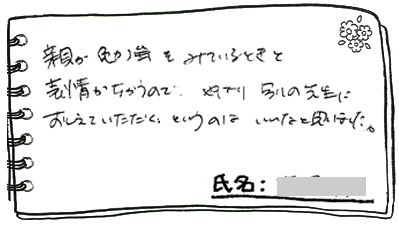 親が勉強をみているときと
表情がちがうので、やはり別の先生に
おしえていただくというのは いいなと思いました。
氏名：